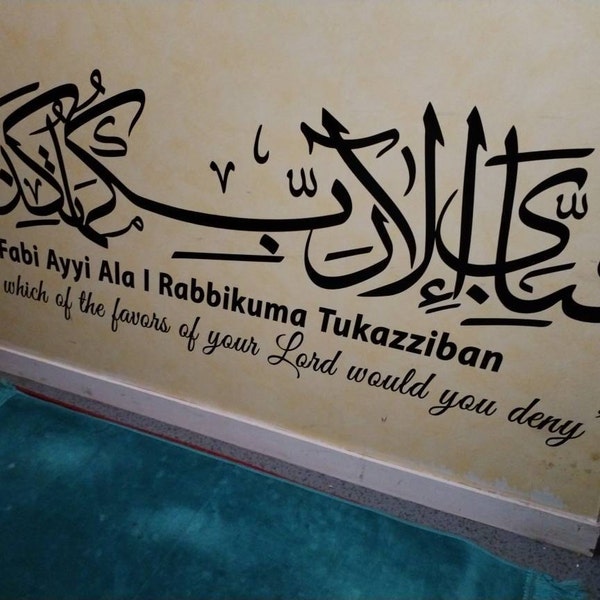 فبأي إلا ربكما تكذ
Fabi Ayyi Ala I Rabbikuma Tukazziban
which of the favors of your Lord would you deny"